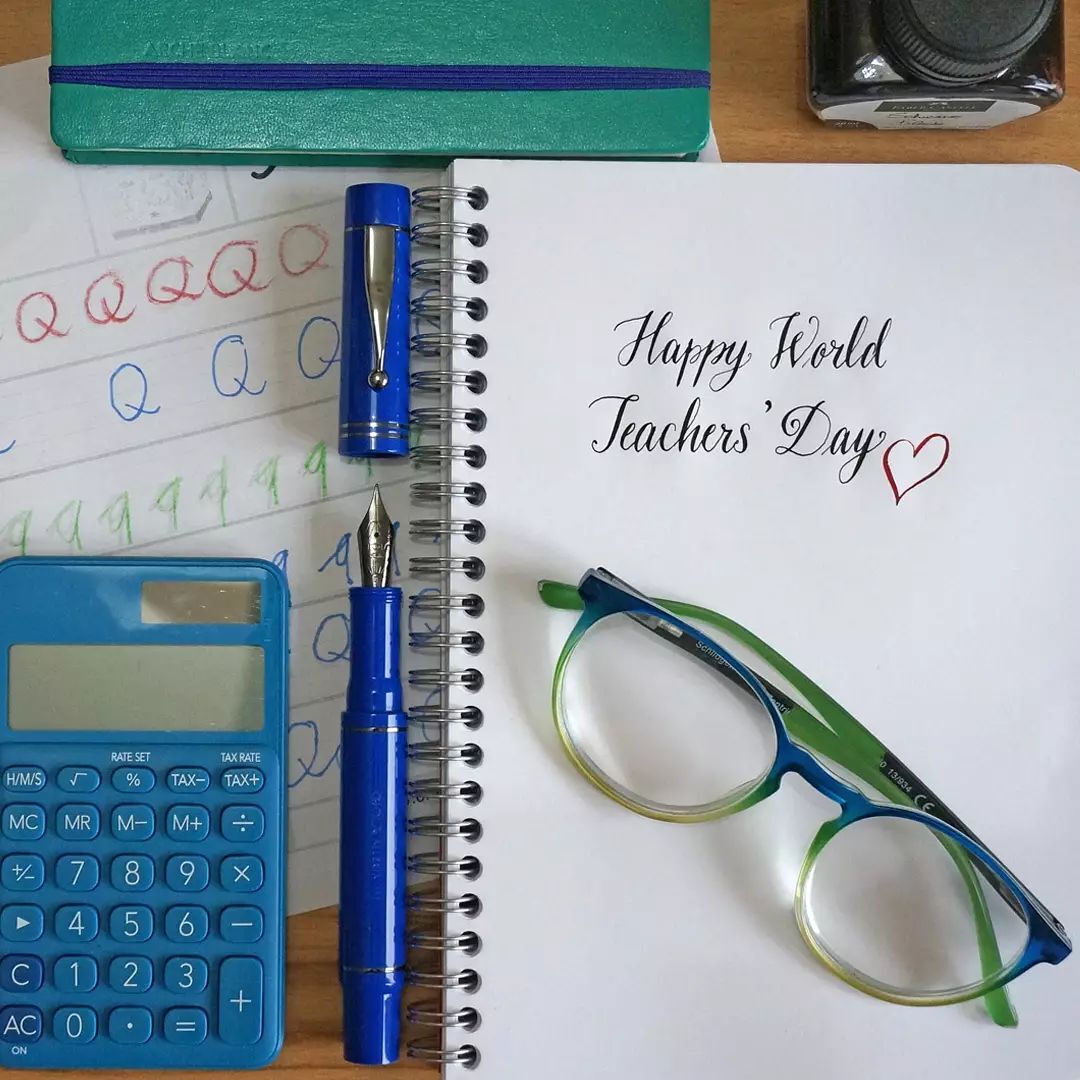 FABER-CASTELL
Q Q Q Q Q
Q Q Q
q q q q q q q
Q
Q
Happy World
Teachers' Day
13/934 CE
RATE SET TAX RATE
H/M/S √ % TAX− TAX+
MC MR M− M+ ÷
+/− 7 8 9 ×
▶ 4 5 6 −
C 1 2 3 +
AC 0 · =
ON